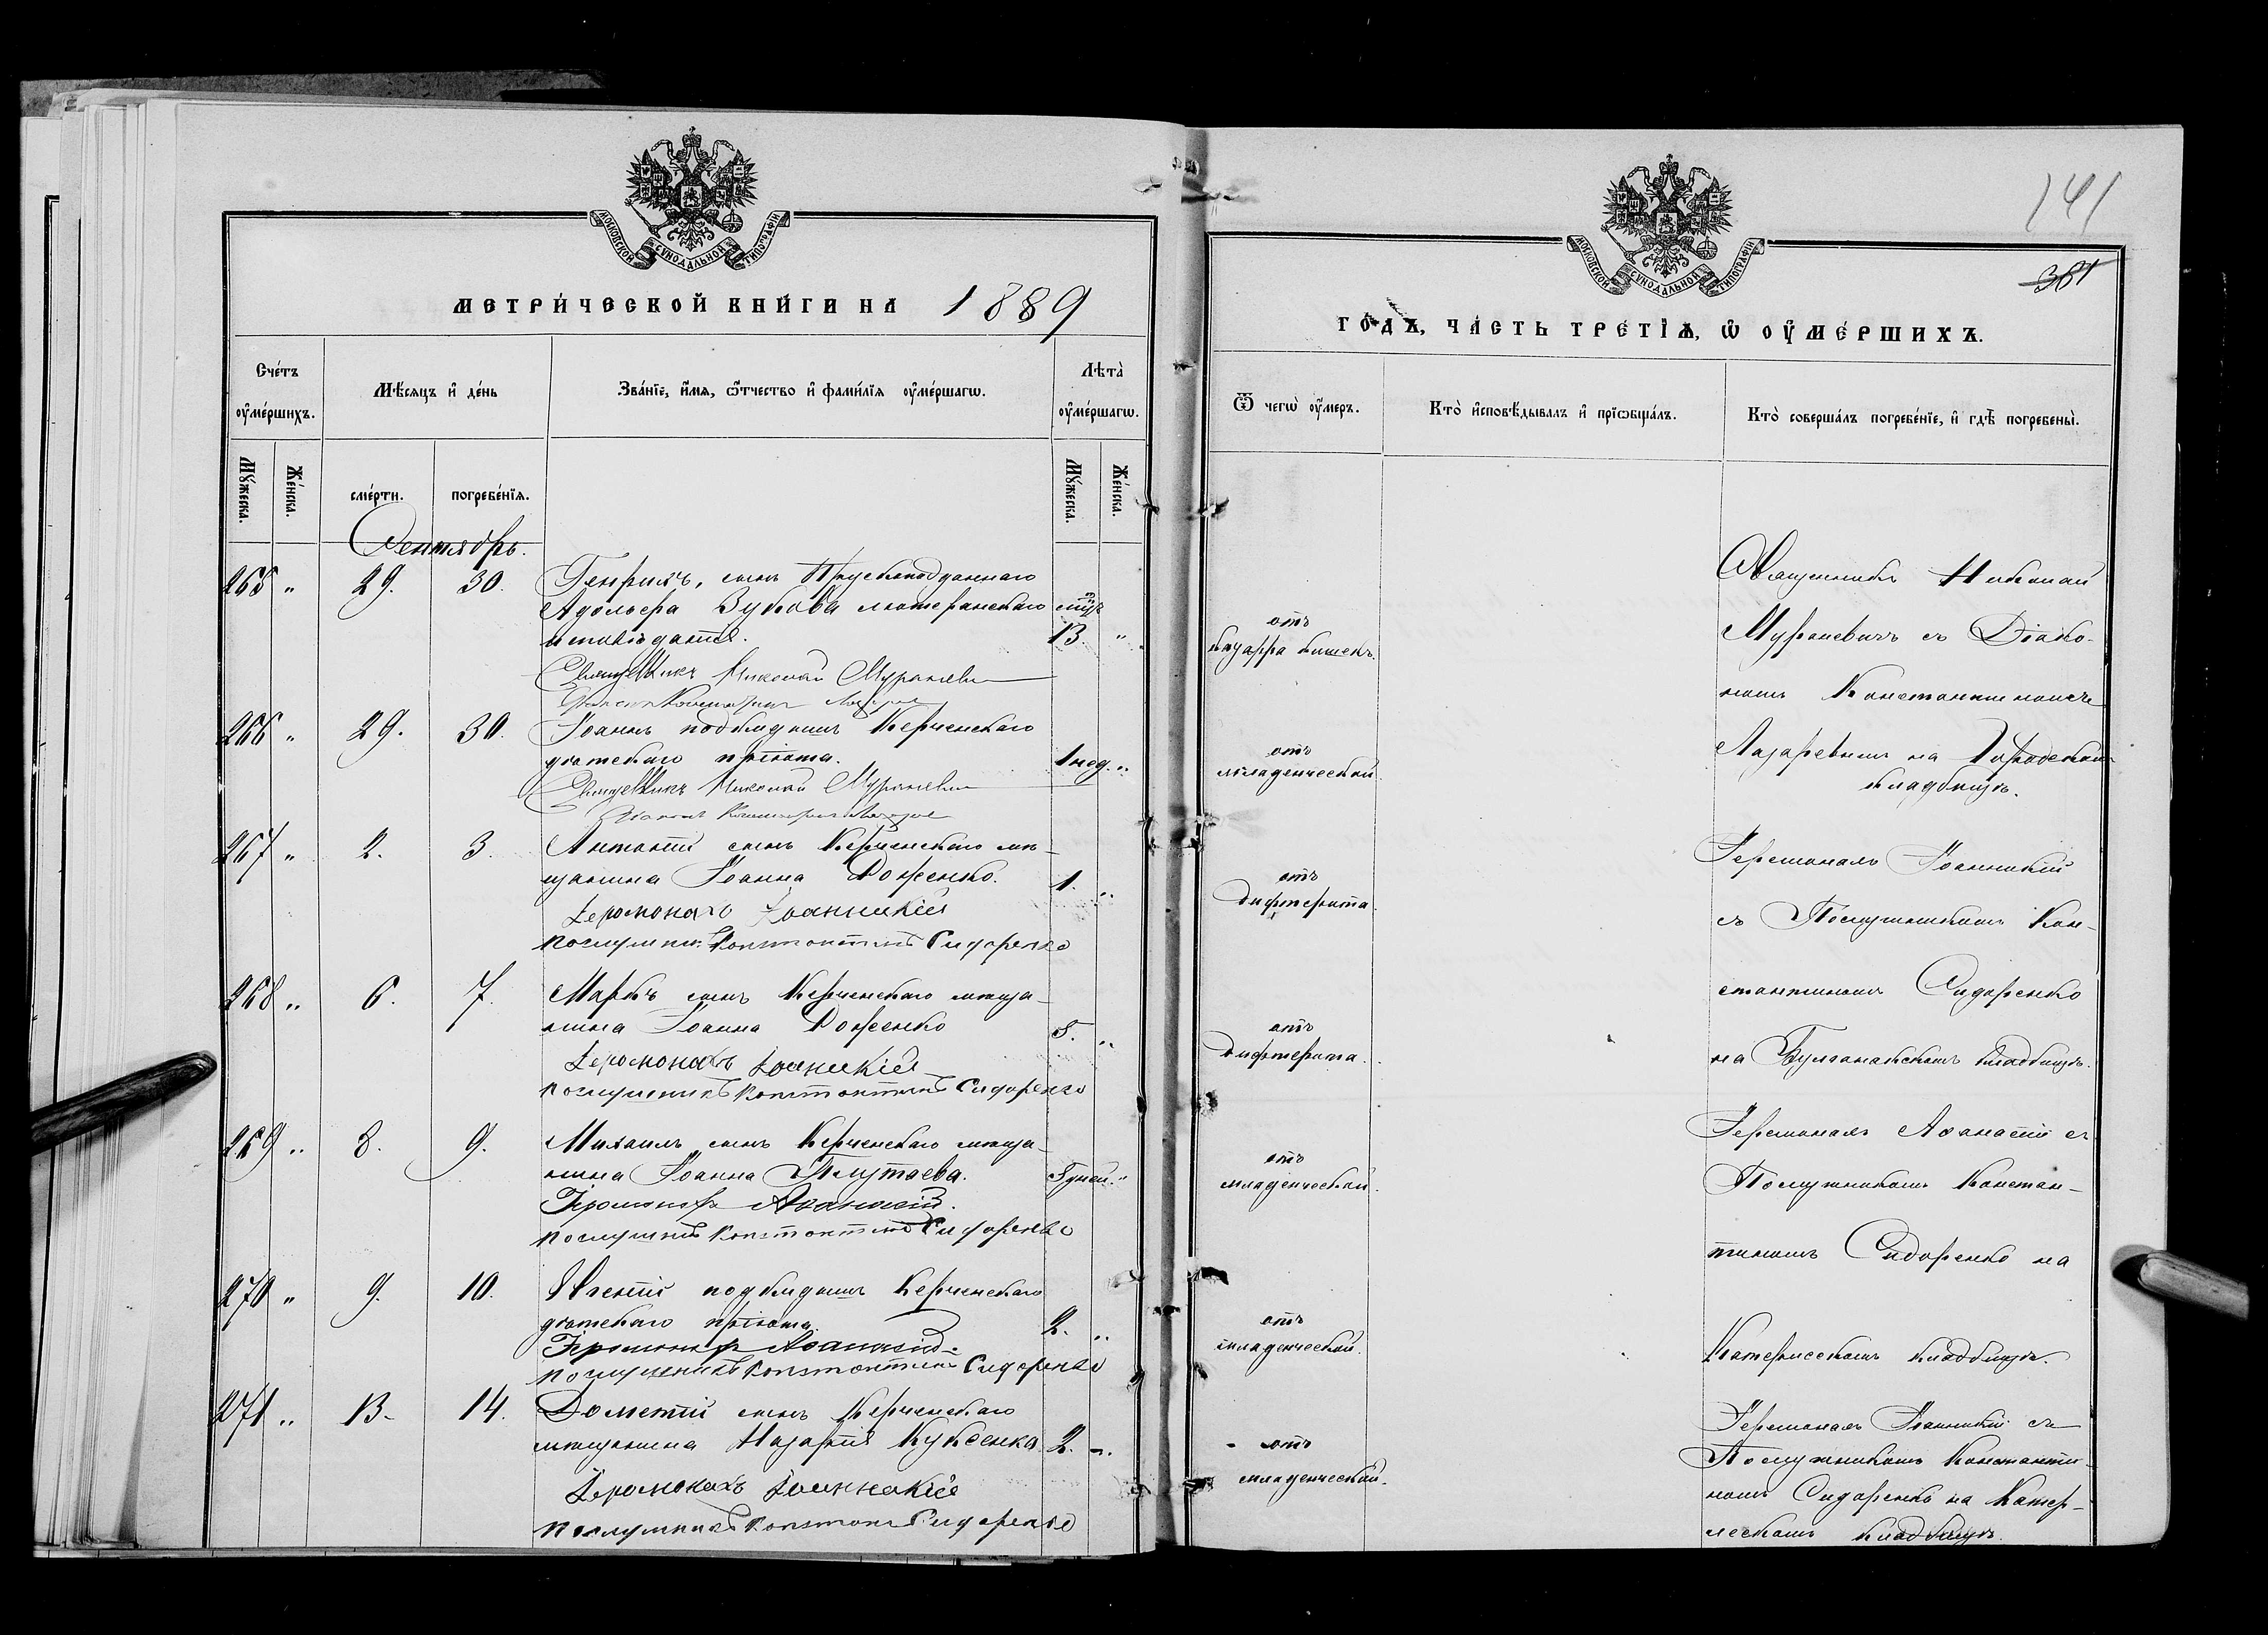 МОСКОВСКОЙ СУНОДАЛЬНОЙ ТИПОГРАФІИ
МЕТРИ́ЧЕСКОЙ КНИ́ГИ НА 1889
Сче́тъ оу҆ме́ршихъ.
Мѣ́сяцъ и҆ де́нь
Зва́нїе, и҆́мя, ѻ҆́тчество и҆ фами́лїя оу҆ме́ршагѡ.
Лѣта̀ оу҆ме́ршагѡ.
Мꙋ́жеска.
Же́нска.
сме́рти.
погребе́нїя.
Мꙋ́жеска.
Же́нска.
Сентябрь.
265 " 29. 30. Генрихъ, сынъ Прускоподданнаго
Адольфа Зукова лютеранскаго
исповѣданія. 13. "
Священникъ Николай Мураневи
266 " 29. 30. Іоаннъ подкидышъ Керченскаго
дѣтскаго пріюта. 1 нед. "
Священникъ Николай Мураневи
267 " 2. 3. Антоній сынъ Керченскаго мѣ-
щанина Іоанна Доженко. 1. "
Іеромонахъ Іоанникій
послушник Константинъ Сидоренко
268 " 6. 7. Маркъ сынъ Керченскаго мѣща-
нина Іоанна Доженко 5. "
Іеромонахъ Іоаникій
послушникъ Константинъ Сидоренко
269 " 8. 9. Михаилъ сынъ Керченскаго мѣща-
нина Іоанна Плутаева. 8 дней. "
Іеромонах Аѳанасій.
послушникъ Константинъ Сидоренко
270 " 9. 10. подкидышъ Керченскаго
дѣтскаго пріюта. 2. "
Іеромонах Аѳанасій.
послушникъ Константинъ Сидоренко
271 " 13. 14. Дометій сынъ Керченскаго
мѣщанина Назарія Куксенка 2. "
Іеромонахъ Іоанникій
послушникъ Констан Сидоренко
141
381
МОСКОВСКОЙ СУНОДАЛЬНОЙ ТИПОГРАФІИ
ГО́ДЪ, ЧА́СТЬ ТРЕ́ТЇѦ, Ѡ҆ ОУ҆МЕ́РШИХЪ.
Ѿ чегѡ̀ оу҆́меръ.
Кто̀ и҆сповѣ́дывалъ и҆ прїѡбща́лъ.
Кто̀ соверша́лъ погребе́нїе, и҆ гдѣ̀ погребены̀.
отъ
катарра кишекъ.
Священникъ Николай
Мураневичъ съ Діако-
номъ Константиномъ
Лазаревымъ на Городскомъ
кладбищѣ.
отъ
младенческой.
отъ
дифтерита.
Іеромонахъ Іоанникій
съ Послушникомъ Кон-
стантиномъ Сидоренко
на Булганакскомъ кладбищѣ.
отъ
дифтерита.
отъ
младенческой.
Іеромонахъ Аѳанасій съ
Послушникомъ Констан-
тиномъ Сидоренко на
Катерлесскомъ кладбищѣ.
отъ
младенческой.
отъ
младенческой.
Іеромонахъ Іоанникій съ
Послушникомъ Константи-
номъ Сидоренко на Катер-
лескомъ кладбищѣ.